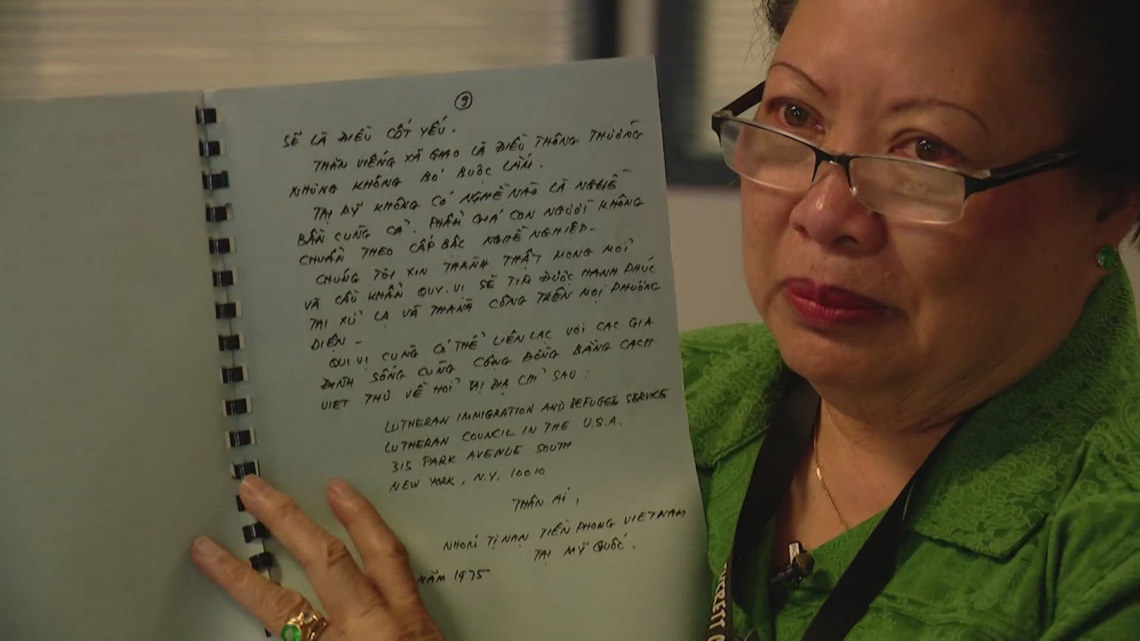 9
SẼ LÀ ĐIỀU CỐT YẾU.
THĂN VIẾNG XÃ GIAO LÀ ĐIỀU THÔNG THƯỜNG
NHƯNG KHÔNG BÓ BUỘC LẮM.
TẠI MỸ KHÔNG CÓ NGHỀ NÀO LÀ NGHỀ
BẦN CÙNG CẢ. PHẨM GIÁ CON NGƯỜI KHÔNG
CHUẨN THEO CẤP BẬC NGHỀ NGHIỆP-
CHÚNG TÔI XIN THÀNH THẬT MONG MỎI
VÀ CẦU KHẨN QUÝ.VỊ SẼ TÌM ĐƯỢC HẠNH PHÚC
TẠI XỨ LẠ VÀ THÀNH CÔNG TRÊN MỌI PHƯƠNG
DIỆN-
QUÍ VỊ CŨNG CÓ THỂ LIÊN LẠC VỚI CÁC GIA
ĐÌNH SỐNG CÙNG CỘNG ĐỒNG BẰNG CÁCH
VIẾT THƯ VỀ HỎI TẠI ĐỊA CHỈ SAU:
LUTHERAN IMMIGRATION AND REFUGEE SERVICE
LUTHERAN COUNCIL IN THE U.S.A.
315 PARK AVENUE SOUTH
NEW YORK, N.Y. 10010
THÂN ÁI,
NHÓM TỊ NẠN TIỀN PHONG VIETNAM
TẠI MỸ QUỐC.
NĂM 1975